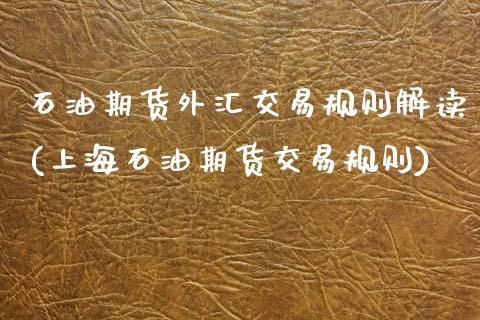 石油期货外汇交易规则解读
(上海石油期货交易规则)